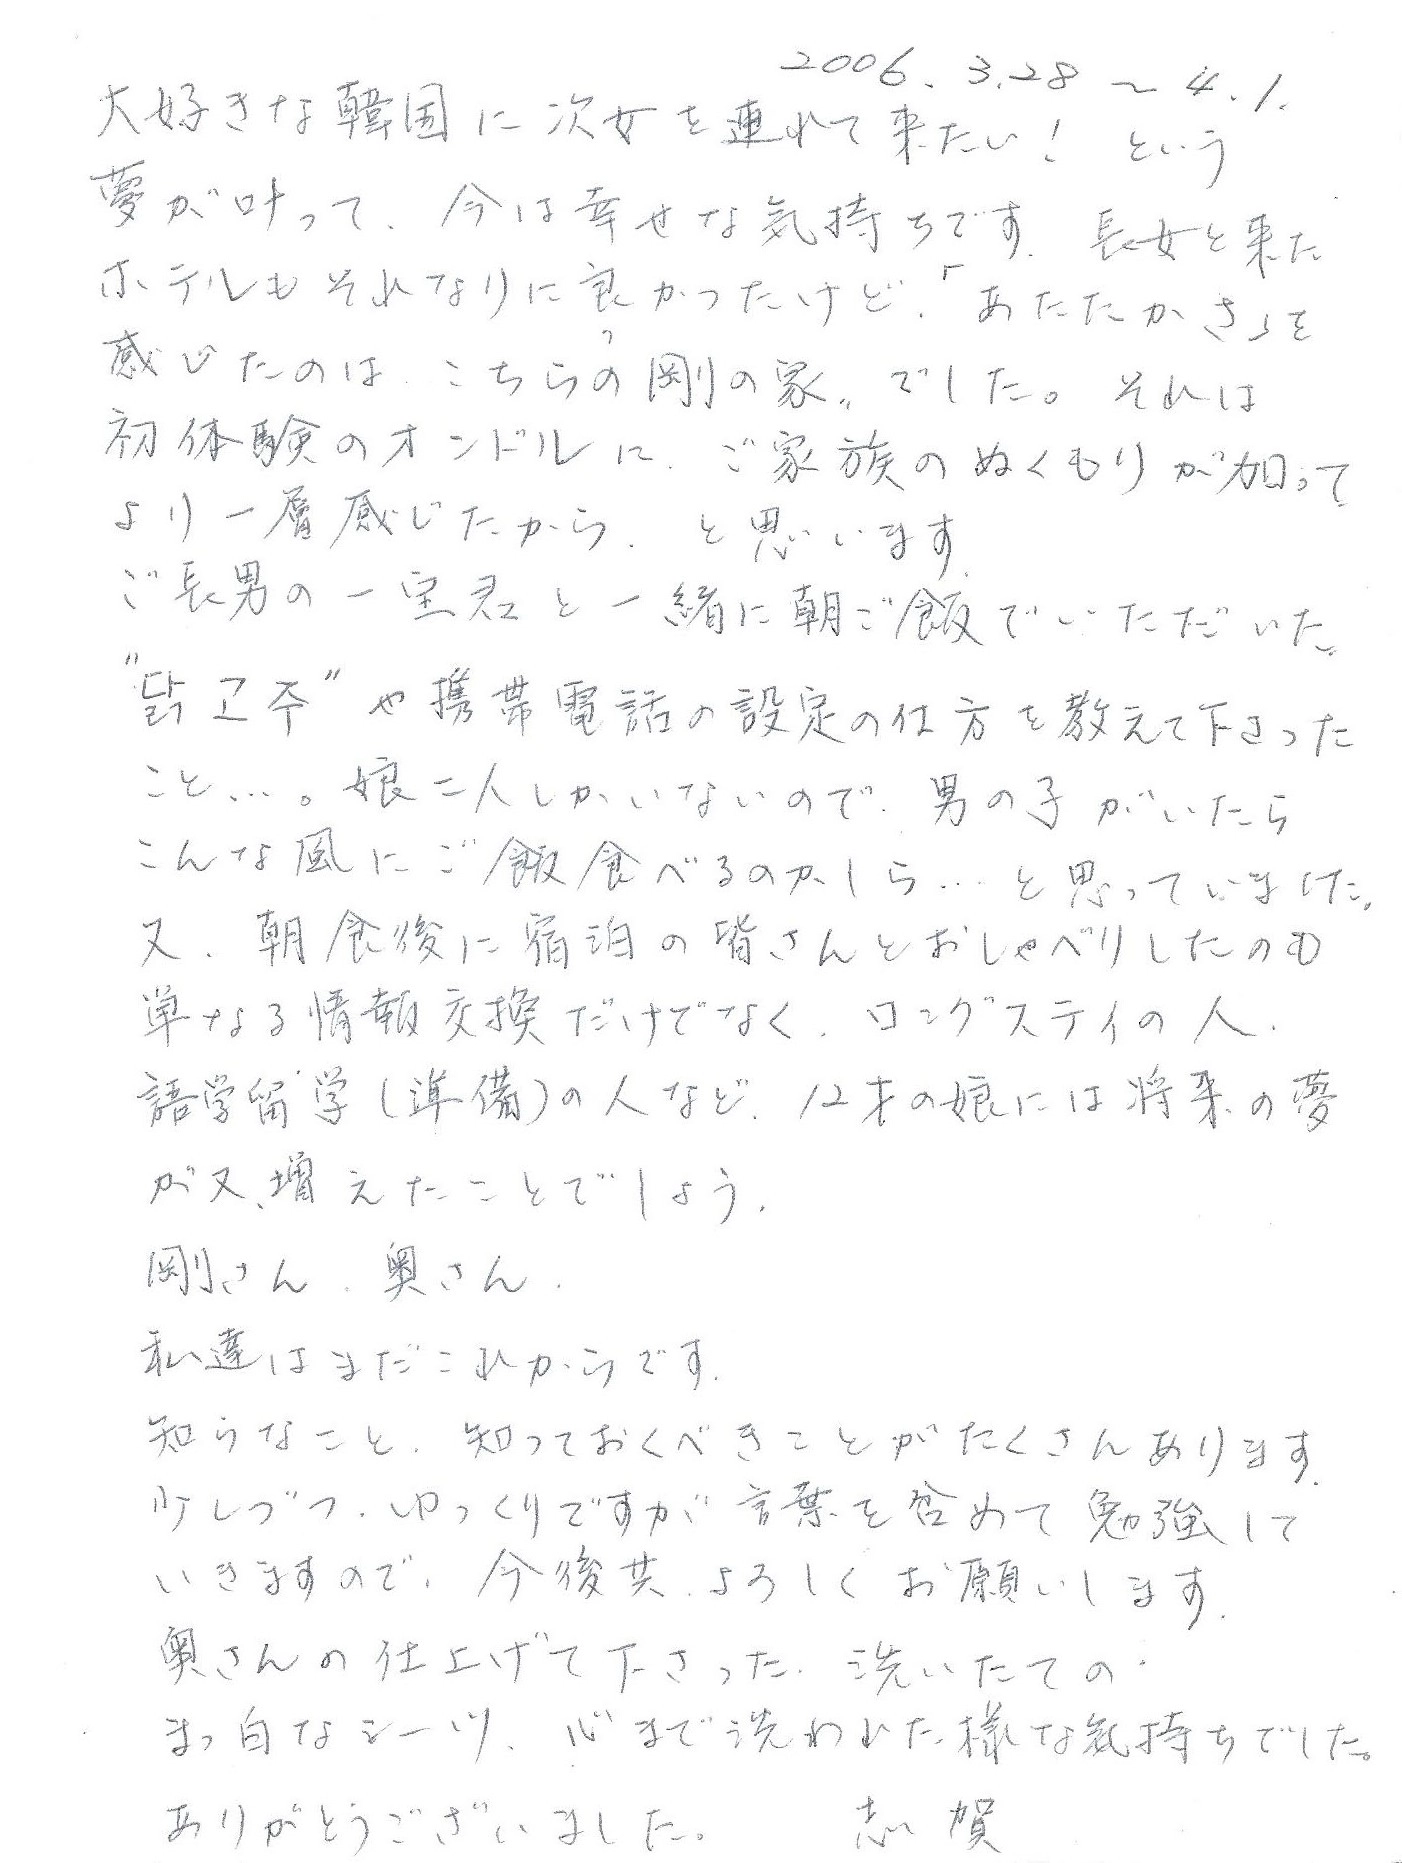 2006. 3.28 〜 4.1.
大好きな韓国に次女を連れて来たい! という
夢が叶って、今は幸せな気持ちです. 長女と来た
ホテルもそれなりに良かったけど.「あたたかさ」を
感じたのは、こちらの〝剛の家〟でした。それは
初体験のオンドルに、ご家族のぬくもりが加って
より一層感じたから、と思います.
ご長男の一宝君と一緒に朝ご飯でいただいた。
"닭고주"や携帯電話の設定の仕方を教えて下さった
こと…。娘二人しかいないので、男の子がいたら
こんな風にご飯食べるのかしら…と思っていました。
又、朝食後に宿泊の皆さんとおしゃべりしたのも
単なる情報交換だけでなく、ロングステイの人、
語学留学(準備)の人など、12才の娘には将来の夢
が又、増えたことでしょう.
剛さん、奥さん、
私達はまだこれからです.
知らなこと、知っておくべきことがたくさんあります.
少しづつ、ゆっくりですが言葉を含めて勉強して
いきますので、今後共、よろしくお願いします.
奥さんの仕上げて下さった、洗いたての
まっ白なシーツ、心まで洗われた様な気持ちでした。
ありがとうございました。 志賀